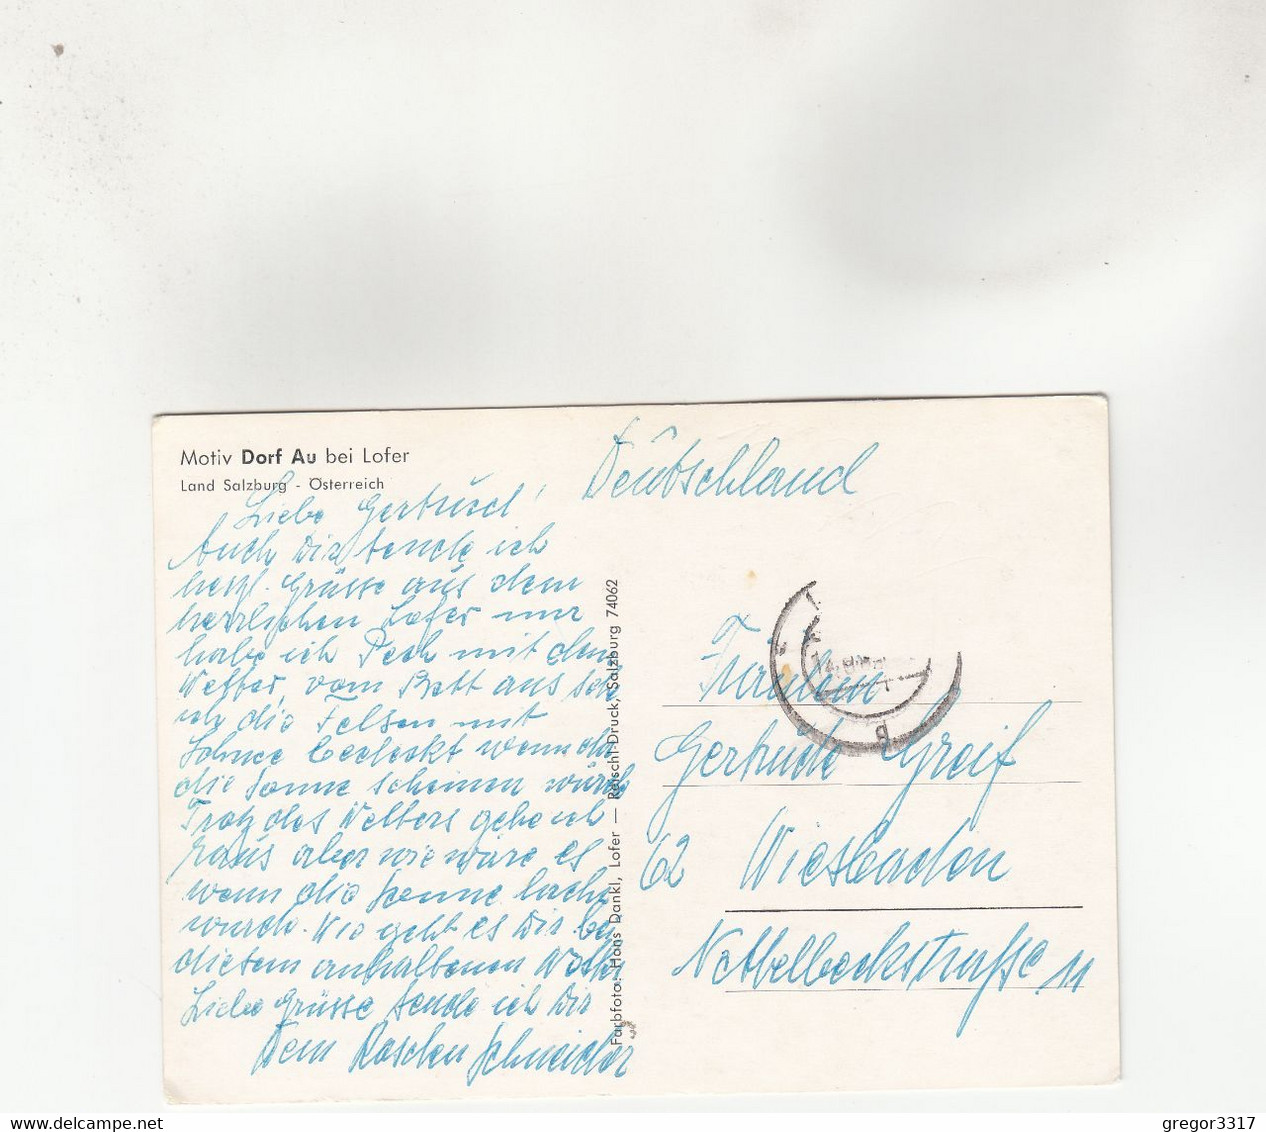 Motiv Dorf Au bei Lofer
Land Salzburg - Österreich
Deutschland
Liebe Gertrud!
Auch Dir sende ich
herzl. Grüsse aus dem
herrlichen Lofer nur
habe ich Pech mit dem
Wetter, vom Bett aus seh
ich die Felsen mit
Schnee bedeckt wenn da
die Sonne scheinen würde
Trotz des Wetters gehe ich
raus aber wie wäre es
wenn die Sonne lachen
würde. Wie geht es Dir bei
diesem anhaltenen Wetter
Liebe Grüsse sende ich Dir
Dein Schneider
Farbfoto: Hans Dankl, Lofer — Reischl-Druck, Salzburg 74062
Fräulein
Gertrude Greif
62 Wiesbaden
Nettelbeckstrasse 11
gregor3317